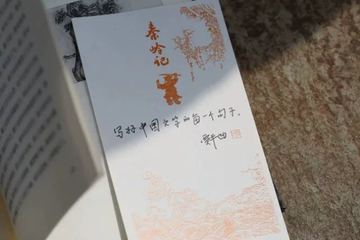 秦岭记
写好中国文字的每一个句子。
贾平凹